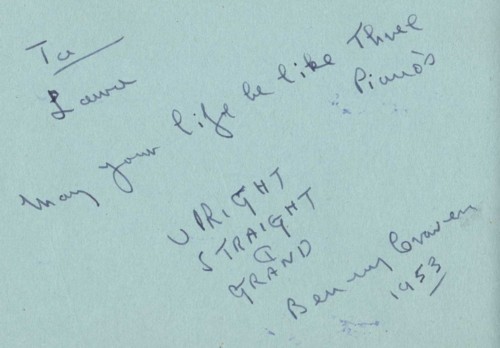 To
Laura
May your life be like Three
Piano's
UPRIGHT
STRAIGHT
&
GRAND
Benny Craven
1953